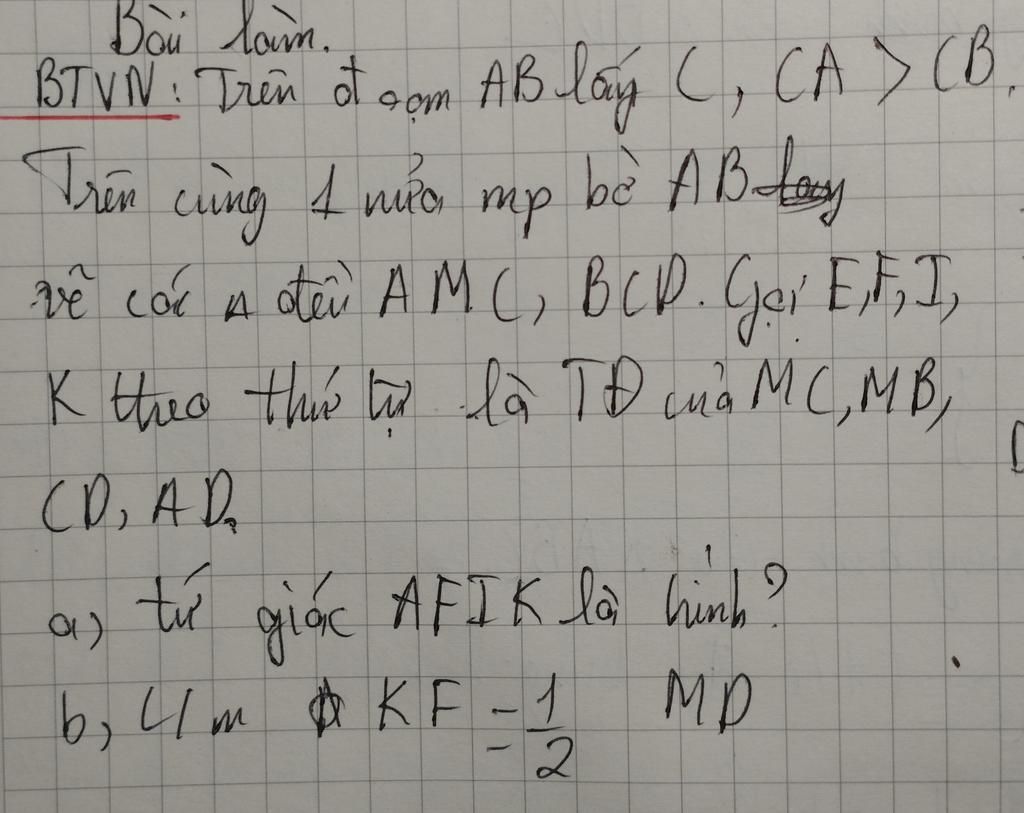 Bài làm.
BTVN: Trên đoạn AB lấy C, CA > CB.
Trên cùng 1 nửa mp bờ AB
vẽ các Δ đều AMC, BCD. Gọi E, F, I,
K theo thứ tự là TĐ của MC, MB,
CD, AD.
a) tứ giác AFIK là hình?
b, C/m KF = 1/2 MD